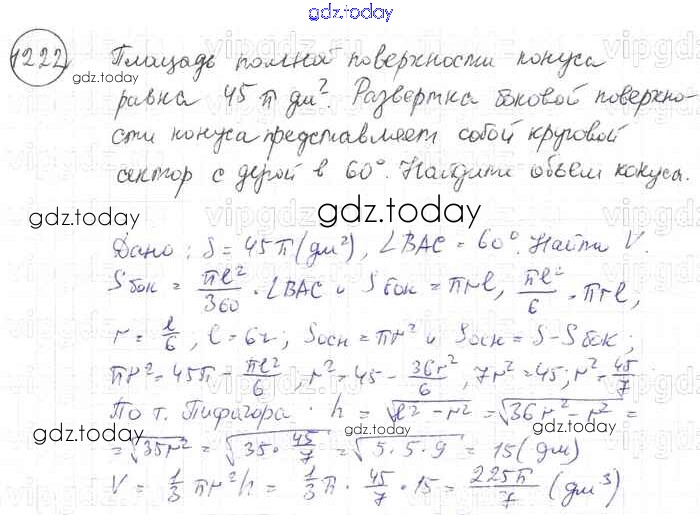 gdz.today
1222, Площадь полной поверхности конуса
gdz.today
равна 45 π дм². Развертка боковой поверхно-
сти конуса представляет собой круговой
сектор с дугой в 60°. Найдите объем конуса.
gdz.today
Дано: S = 45π (дм²), ∠BAC = 60°. Найти V.
Sбок = πl²/360 · ∠BAC и Sбок = πrl, πl²/6 = πrl,
r = l/6, l = 6r; Sосн = πr² и Sосн = S - Sбок;
gdz.today gdz.today
πr² = 45π - πl²/6, r² = 45 - 36r²/6, 7r² = 45; r² = 45/7
По т. Пифагора: h = √l² - r² = √36r² - r² =
gdz.today gdz.today
= √35r² = √35 · 45/7 = √5·5·9 = 15 (дм)
V = 1/3 πr²h = 1/3 π · 45/7 · 15 = 225π/7 (дм³)
gdz.today